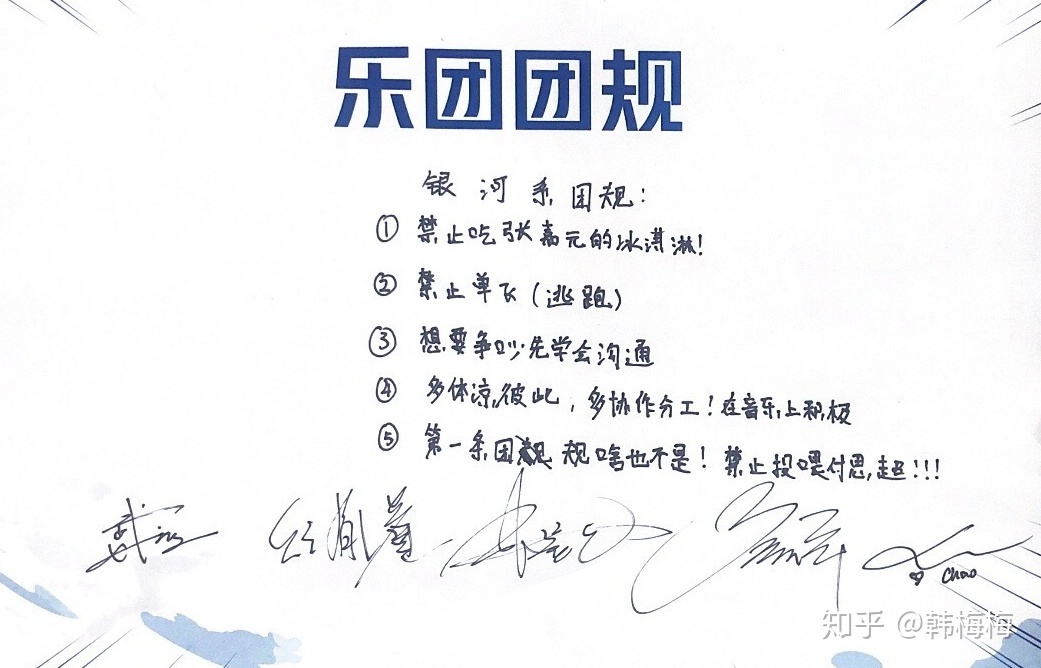 乐团团规
银河系团规:
① 禁止吃张嘉元的冰淇淋!
② 禁止单飞(逃跑)
③ 想要争吵先学会沟通
④ 多体凉彼此,多协作分工!在音乐上积极
⑤ 第一条团规 规啥也不是!禁止投喂付思超!!!
任胤蓬
Chao
知乎 @韩梅梅